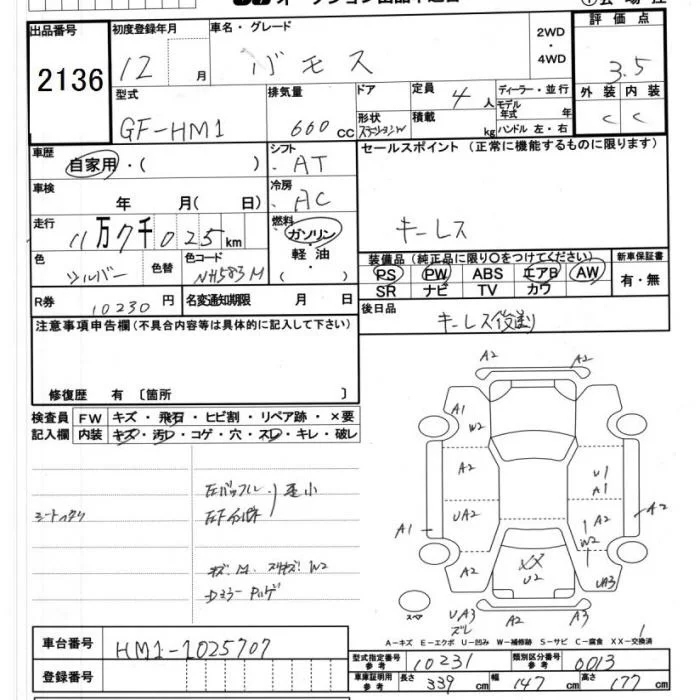 出品番号 2136
初度登録年月 12 月
車名・グレード バモス
2WD
・
4WD
評価点 3.5
外装 内装
C C
型式 GF-HM1
排気量 660 CC
ドア
形状
定員 4 人
積載 kg
ディーラー・並行
モデル年式 年
ハンドル 左・右
車歴 自家用・( )
シフト AT
セールスポイント (正常に機能するものに限ります)
キーレス
車検 年 月( 日)
冷房 AC
走行 11万7千025 km
燃料 ガソリン
・
軽油
・
( )
色 シルバー 色替
色コード NH583M
装備品 (純正品に限り○をつけてください)
PS PW ABS エアB AW
SR ナビ TV カワ
新車保証書
有・無
R券 10230 円
名変通知期限 月 日
後日品 キーレス後送り
注意事項申告欄 (不具合内容等は具体的に記入して下さい)
修復歴 有 〔箇所 〕
検査員 FW キズ・飛石・ヒビ割・リペア跡・×要
記入欄 内装 キズ・汚レ・コゲ・穴・スレ・キレ・破レ
A2 A2
A1 W2
A2 U1 A1
UA2 A2 W2
A1 A2
A2 XX U2 UA3
スペア
UA3 ズレ A2 A3
A-キズ E-エクボ U-凹み W-補修跡 S-サビ C-腐食 XX-交換済
車台番号 HM1-1025707
登録番号
型式指定番号 参考 10231
類別区分番号 参考 0013
車庫証明用 参考 長さ 339 cm 幅 147 cm 高さ 177 cm